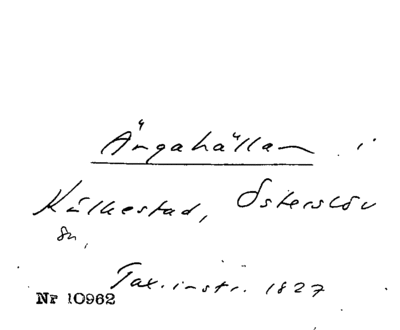 Ängahällan i
Kälkestad, Österslöv
sn,
Tax.instr. 1827
Nr 10962